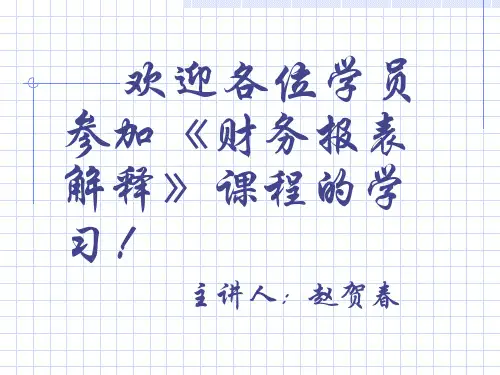 欢迎各位学员
参加《财务报表
解释》课程的学
习！
主讲人：赵贺春